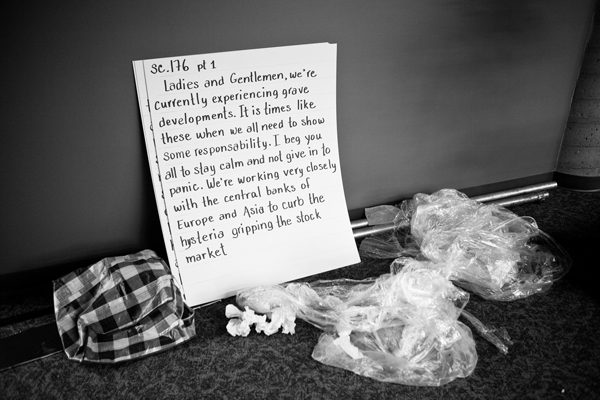 Sc.176 pt 1
Ladies and Gentlemen, we're
currently experiencing grave
developments. It is times like
these when we all need to show
some responsability. I beg you
all to stay calm and not give in to
panic. We're working very closely
with the central banks of
Europe and Asia to curb the
hysteria gripping the stock
market